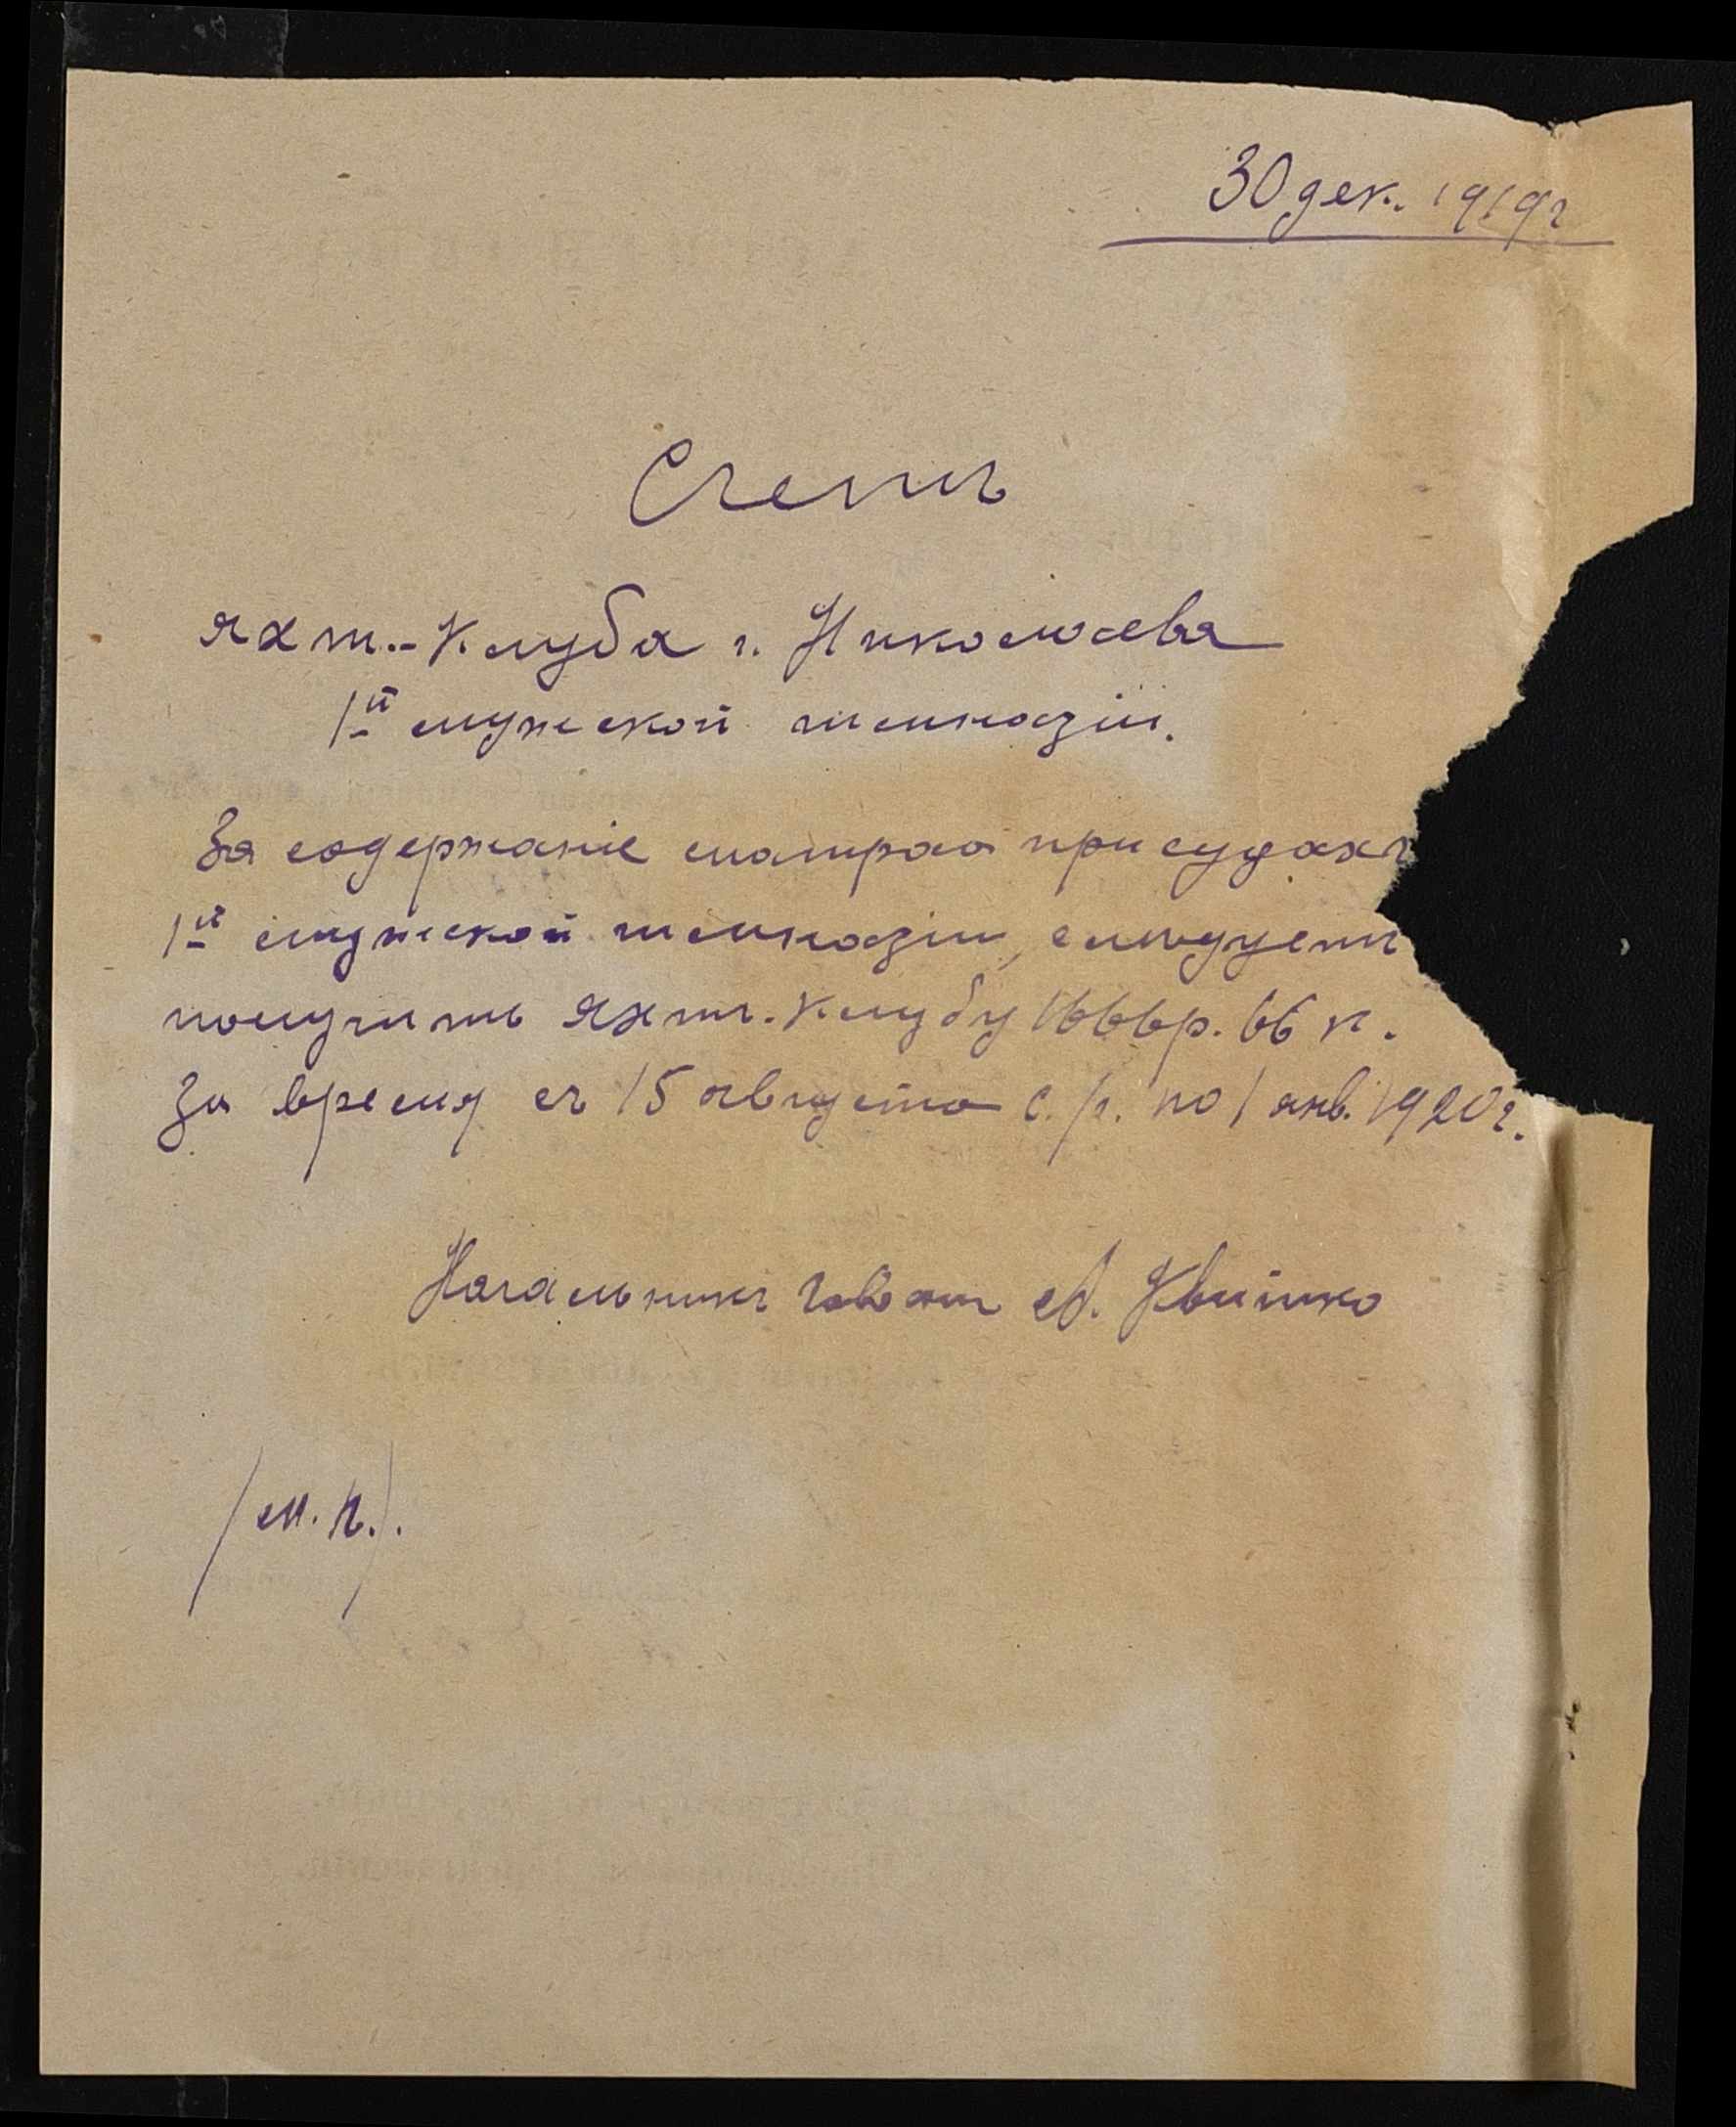 30 дек. 1919 г
Счетъ
Яхт.-Клуба г. Николаева
1й мужской гимназіи.
За содержаніе матроса при судахъ
1й мужской гимназіи, слѣдуетъ
получить Яхт.-Клубу 1666 р. 66 к.
За время съ 15 августа с./г. по 1 янв. 1920 г.
Начальникъ Гавани А. Квитко
(М. П.).